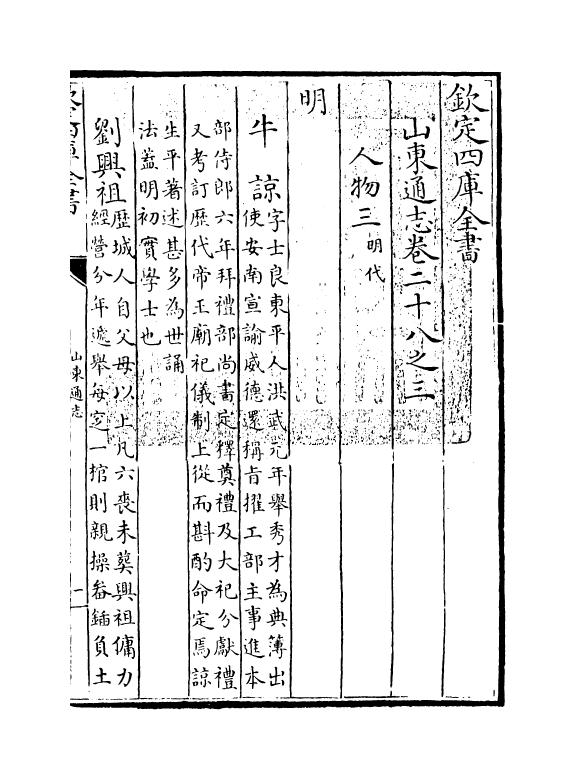 欽定四庫全書
山東通志卷二十八之三
人物三明代
明
牛諒字士良東平人洪武元年舉秀才為典簿出
使安南宣諭威德還稱旨擢工部主事進本
部侍郎六年拜禮部尚書定釋奠禮及大祀分獻禮
又考訂歴代帝王廟祀儀制上從而斟酌命定焉諒
生平著述甚多為世誦
法蓋明初實學士也
劉興祖歴城人自父母以上凡六喪未葬興祖傭力
經營分年遞舉每窆一棺則親操畚鍤負土
山東通志
一